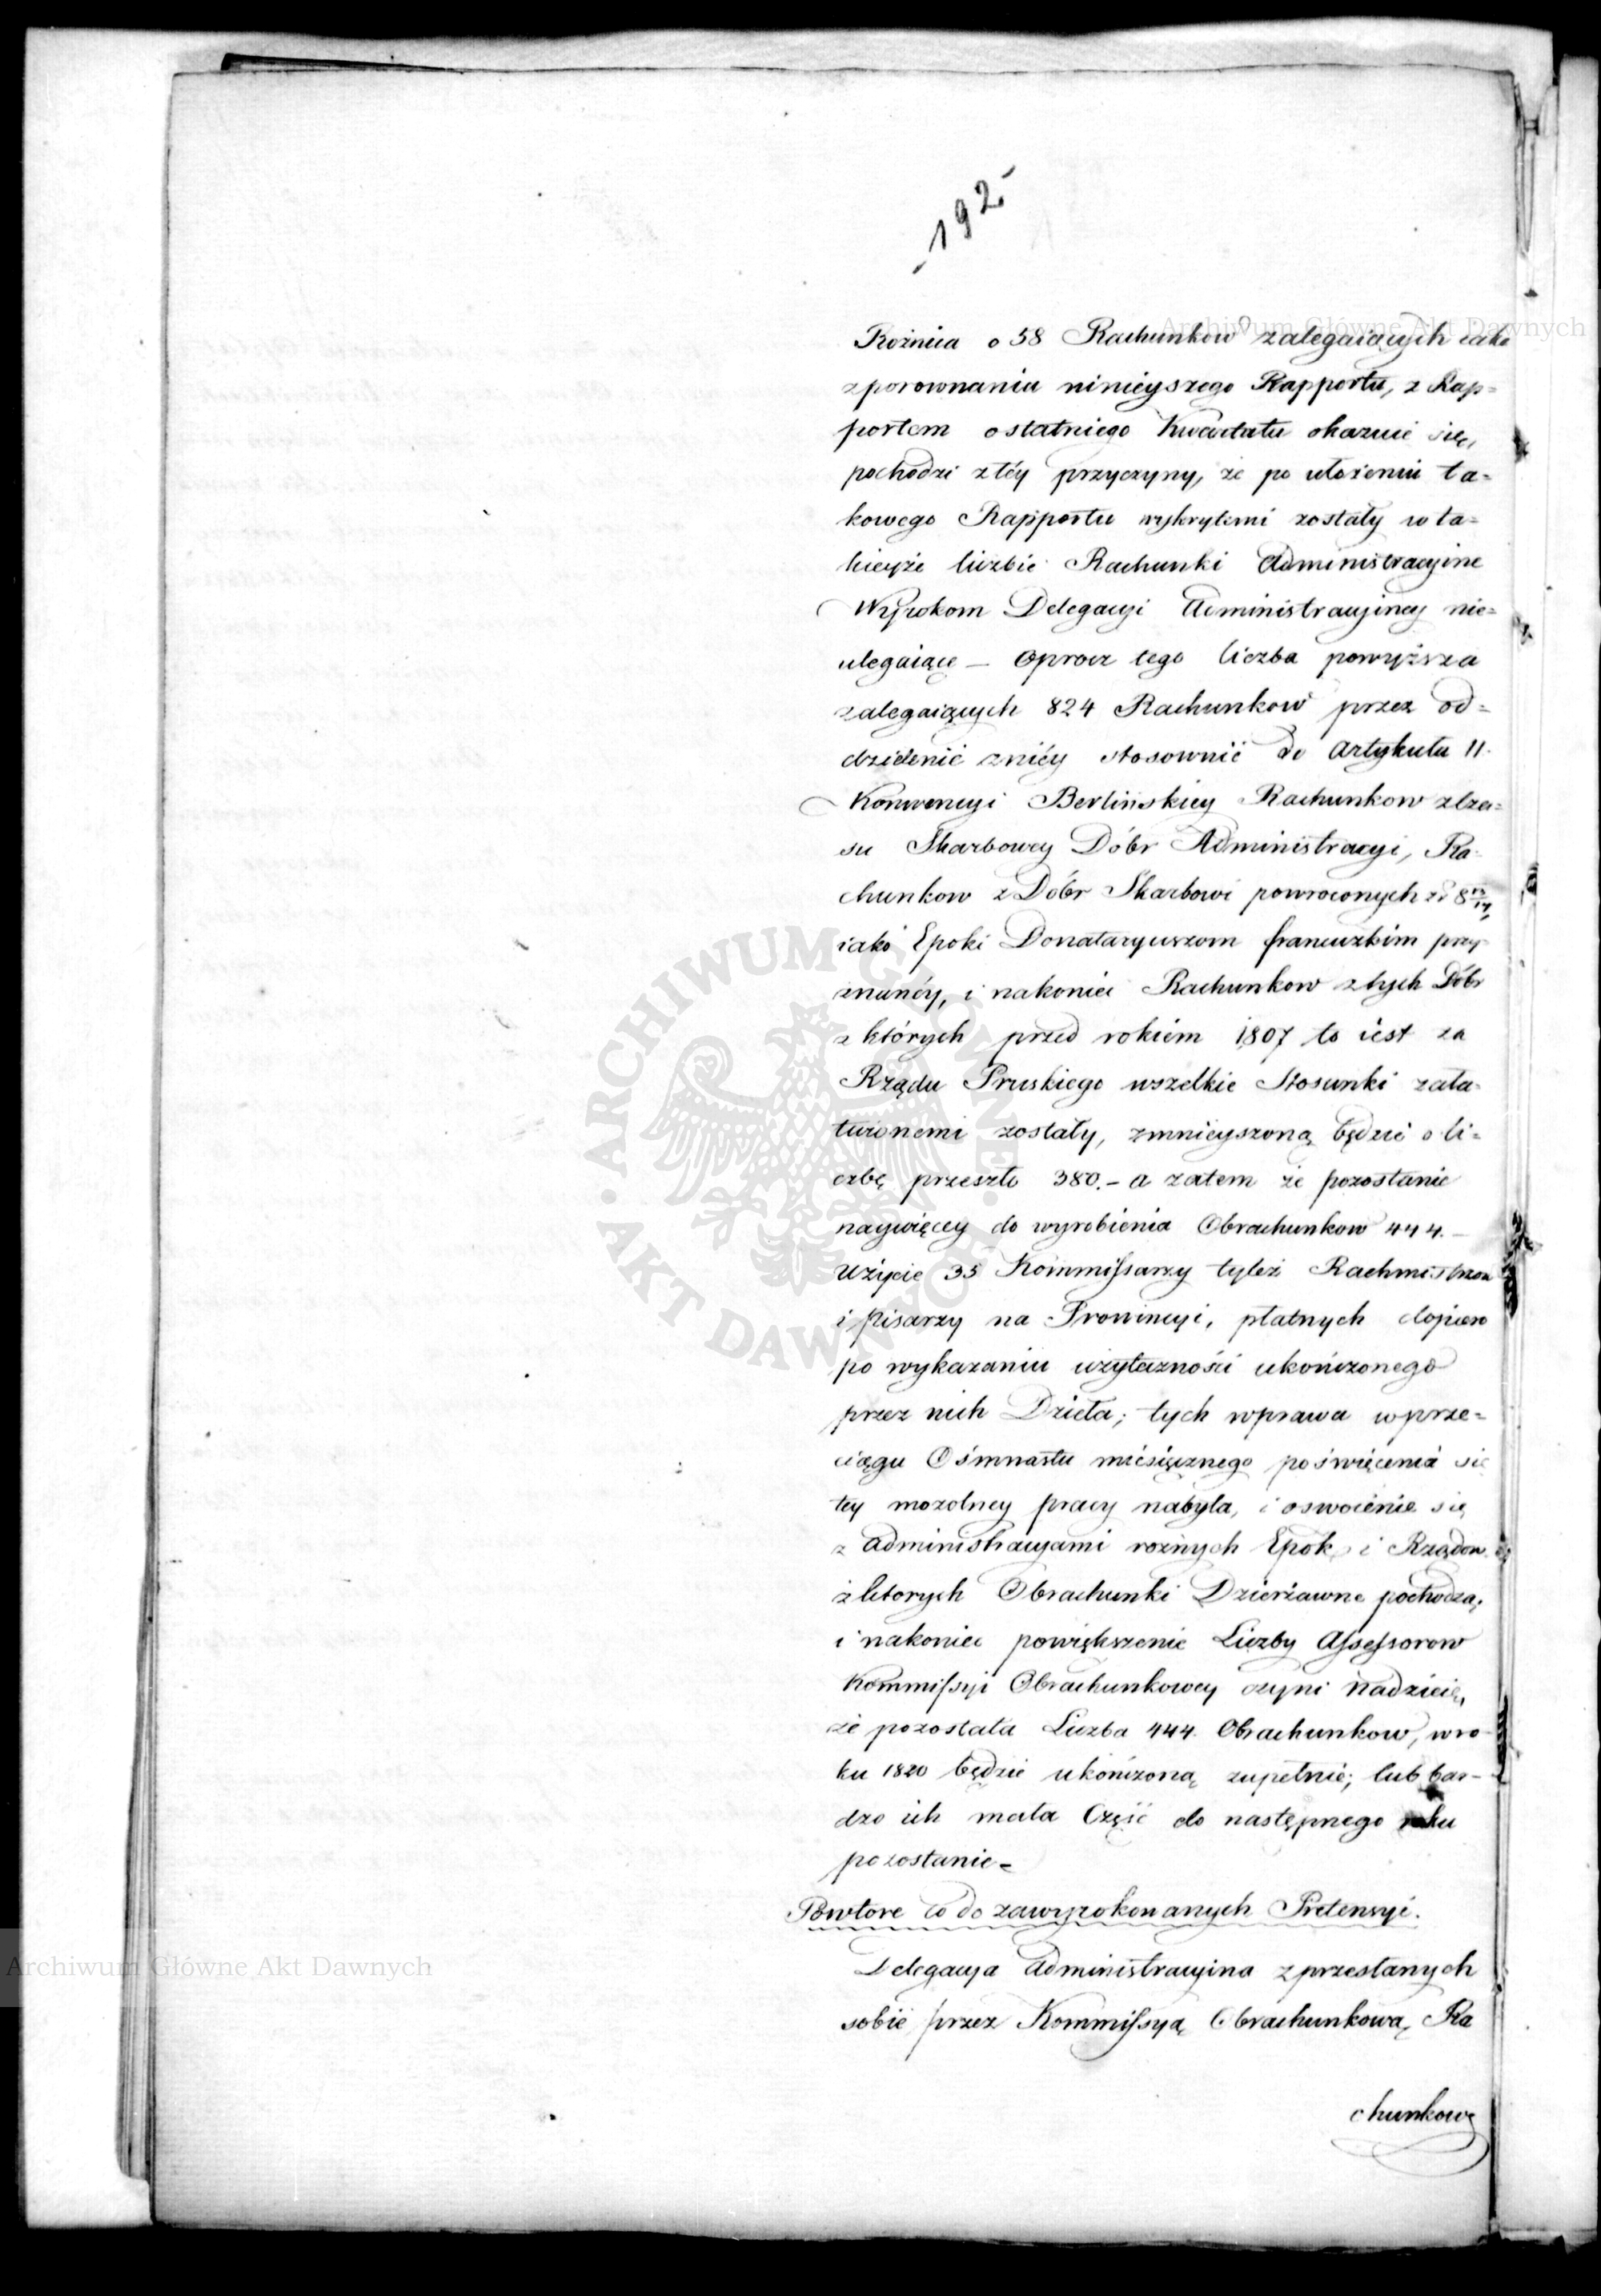 -192-
Archiwum Główne Akt Dawnych
Rożnica o 58 Rachunkow zalegaiących iako
z porownania ninieyszego Rapportu, z Rap=
portem ostatniego Kwartału okazuie się,
pochodzi z téy przyczyny, że po ułożeniu ta=
kowego Rapportu wykrytemi zostały w ta=
kieyże liczbie Rachunki Administracyine
Wyrokom Delegacyi Administracyiney nie=
ulegaiące – Oprocz tego liczba powyższa
zalegaiących 824 Rachunkow przez od=
dzielenie z niéy stosownie do Artykułu 11.
Konwencyi Berlińskiey Rachunkow z Cza=
su Skarbowey Dóbr Administracyi, Ra=
chunkow z Dóbr Skarbowi powroconych z r 8 13/14,
iako Epoki Donataryuszom francuzkim przy=
znanéy, i nakoniec Rachunkow z tych Dóbr
z których przed rokiem 1807 to iest za
Rządu Pruskiego wszelkie Stosunki zała=
twionemi zostały, zmnieyszoną będzie o li=
czbę przeszło 380. – a zatem że pozostanie
naywięcey do wyrobienia Obrachunkow 444. –
Użycie 35 Kommissarzy tyleż Rachmistrzow
i Pisarzy na Prowincyi, płatnych dopiero
po wykazaniu użyteczności ukończonego
przez nich Dzieła; tych wprawa w prze=
ciągu Ośmnastu miesięcznego poświęcenia się
tey mozolney pracy nabyta, i oswoienie się
z Administracyami rożnych Epok i Rządow
z ktorych Obrachunki Dzierżawne pochodzą;
i nakoniec powiększenie Liczby Assessorow
Kommissyi Obrachunkowey czyni Nadzieię,
że pozostała Liczba 444. Obrachunkow, w ro=
ku 1820 będzie ukończoną zupełnie; lub bar=
dzo ich mała Część do następnego roku
pozostanie =
Powtore co do zawyrokowanych Pretensyi.
Delegacya Administracyina z przesłanych
sobie przez Kommissyą Obrachunkową Ra
chunkow
Archiwum Główne Akt Dawnych
ARCHIWUM GŁÓWNE AKT DAWNYCH